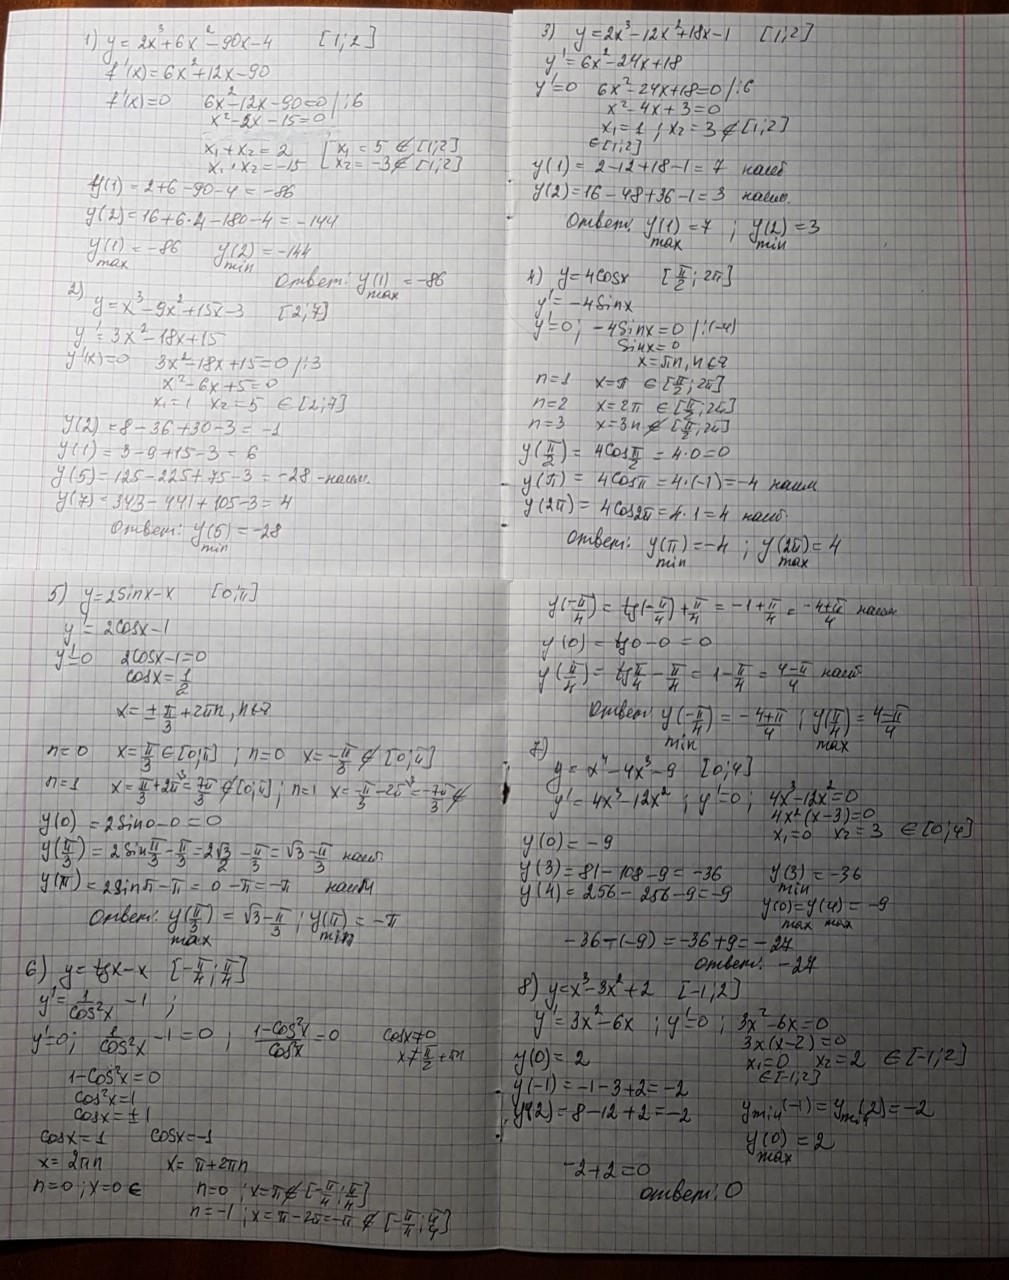 1) y = 2x³+6x²-90x-4 [1;2]
f'(x)=6x²+12x-90
f'(x)=0 6x²-12x-90=0 /:6
x²-2x-15=0
x₁+x₂=2 [x₁=5 ∉ [1;2]
x₁·x₂=-15 [x₂=-3∉ [1;2]
y(1)=2+6-90-4=-86
y(2)=16+6·4-180-4=-144
y(1)=-86 y(2)=-144
max min
Ответ: y(1)=-86
max
2)
y=x³-9x²+15x-3 [2;7]
y'=3x²-18x+15
y'(x)=0 3x²-18x+15=0 /:3
x²-6x+5=0
x₁=1 x₂=5 ∈[2;7]
y(2)=8-36+30-3=-1
y(1)=3-9+15-3=6
y(5)=125-225+75-3=-28 -наим.
y(7)=343-441+105-3=4
Ответ: y(5)=-28
min
3) y=2x³-12x²+18x-1 [1;2]
y'=6x²-24x+18
y'=0 6x²-24x+18=0 /:6
x²-4x+3=0
x₁=1 ; x₂=3 ∉[1;2]
∈[1;2]
y(1)=2-12+18-1=7 наиб
y(2)=16-48+36-1=3 наим.
Ответ: y(1)=7 ; y(2)=3
max min
4) y=4cosx [π/2; 2π]
y'=-4sinx
y'=0; -4sinx=0 /:(-4)
sinx=0
x=πn, n∈z
n=1 x=π ∈[π/2;2π]
n=2 x=2π ∈[π/2;2π]
n=3 x=3π ∉ [π/2;2π]
y(π/2)=4cosπ/2=4·0=0
y(π)=4cosπ=4·(-1)=-4 наим
y(2π)=4cos2π=4·1=4 наиб.
Ответ: y(π)=-4 ; y(2π)=4
min max
5) y=2sinx-x [0;π]
y'=2cosx-1
y'=0 2cosx-1=0
cosx=1/2
x=±π/3+2πn, n∈z
n=0 x=π/3∈[0;π] ; n=0 x=-π/3∉[0;π]
n=1 x=π/3+2π\³=7π/3∉[0;π]; n=1 x=-π/3-2π\³=-7π/3∉
y(0)=2sin0-0=0
y(π/3)=2sinπ/3-π/3=2√3/2-π/3=√3-π/3 наиб
y(π)=2sinπ-π=0-π=-π наим
Ответ: y(π/3)=√3-π/3 ; y(π)=-π
max min
6) y=tgx-x [-π/4;π/4]
y'=1/cos²x-1 ;
y'=0; 1/cos²x-1=0 ; 1-cos²x/cos²x=0 cosx≠0
x≠π/2+πn
1-cos²x=0
cos²x=1
cosx=±1
cosx=1 cosx=-1
x=2πn x=π+2πn
n=0 ; x=0 ∈ n=0 ; x=π∉[-π/4;π/4]
n=-1 ; x=π-2π=-π ∉ [-π/π;π/4]
y(-π/4)=tg(-π/4)+π/4=-1+π/4=-4+π/4 наим
y(0)=tg0-0=0
y(π/4)=tgπ/4-π/4=1-π/4=4-π/4 наиб
Ответ: y(-π/4)=-4+π/4 ; y(π/4)=4-π/4
min max
7)
y=x⁴-4x³-9 [0;4]
y'=4x³-12x² ; y'=0; 4x³-12x²=0
4x²(x-3)=0
x₁=0 x₂=3 ∈[0;4]
y(0)=-9
y(3)=81-108-9=-36 y(3)=-36
min
y(4)=256-256-9=-9 y(0)=y(4)=-9
max max
-36-(-9)=-36+9=-27
Ответ: -27
8) y=x³-3x²+2 [-1;2]
y'=3x²-6x ; y'=0 ; 3x²-6x=0
3x(x-2)=0
x₁=0 x₂=2 ∈[-1;2]
∈[-1;2]
y(0)=2
y(-1)=-1-3+2=-2
y(2)=8-12+2=-2 ymin(-1)=ymin(2)=-2
y(0)=2
max
-2+2=0
Ответ: 0